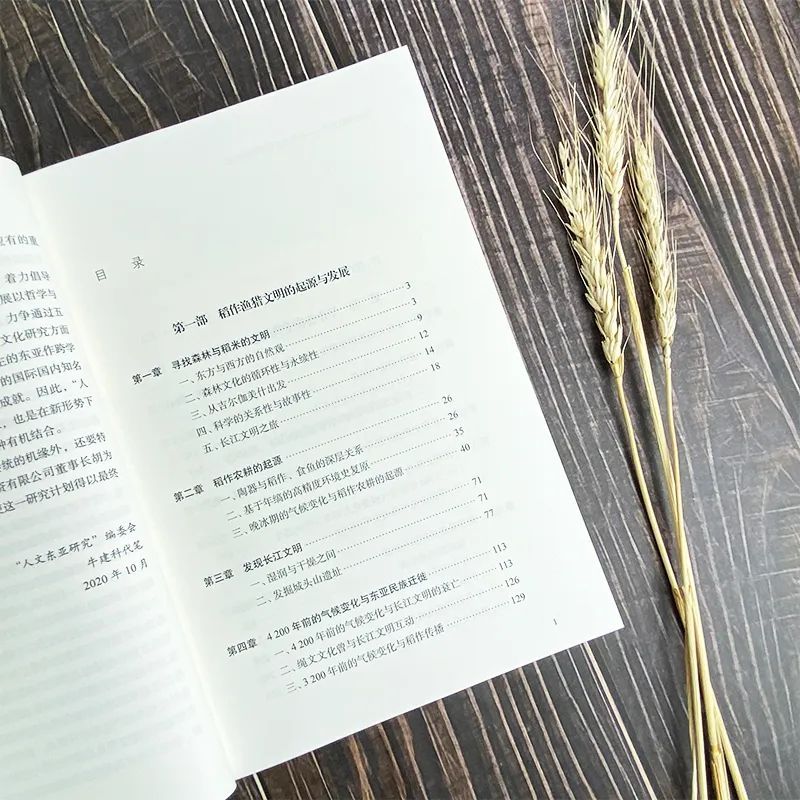 应有的重
着力倡导
展以哲学与
力争通过五
文化研究方面
主的东亚作跨学
的国际国内知名
成就。因此，“人
，也是在新形势下
种有机结合。
统的机缘外，还要特
资有限公司董事长胡为
使这一研究计划得以最终
“人文东亚研究”编委会
牛建科代笔
2020年10月
目 录
第一部 稻作渔猎文明的起源与发展
第一章 寻找森林与稻米的文明 3
一、东方与西方的自然观 3
二、森林文化的循环性与永续性 9
三、从吉尔伽美什出发 12
四、科学的关系性与故事性 14
五、长江文明之旅 18
第二章 稻作农耕的起源 26
一、陶器与稻作、食鱼的深层关系 26
二、基于年缟的高精度环境史复原 35
三、晚冰期的气候变化与稻作农耕的起源 40
第三章 发现长江文明 71
一、湿润与干燥之间 71
二、发掘城头山遗址 77
第四章 4 200年前的气候变化与东亚民族迁徙 113
一、4 200年前的气候变化与长江文明的衰亡 113
二、绳文文化曾与长江文明互动 126
三、3 200年前的气候变化与稻作传播 129
1